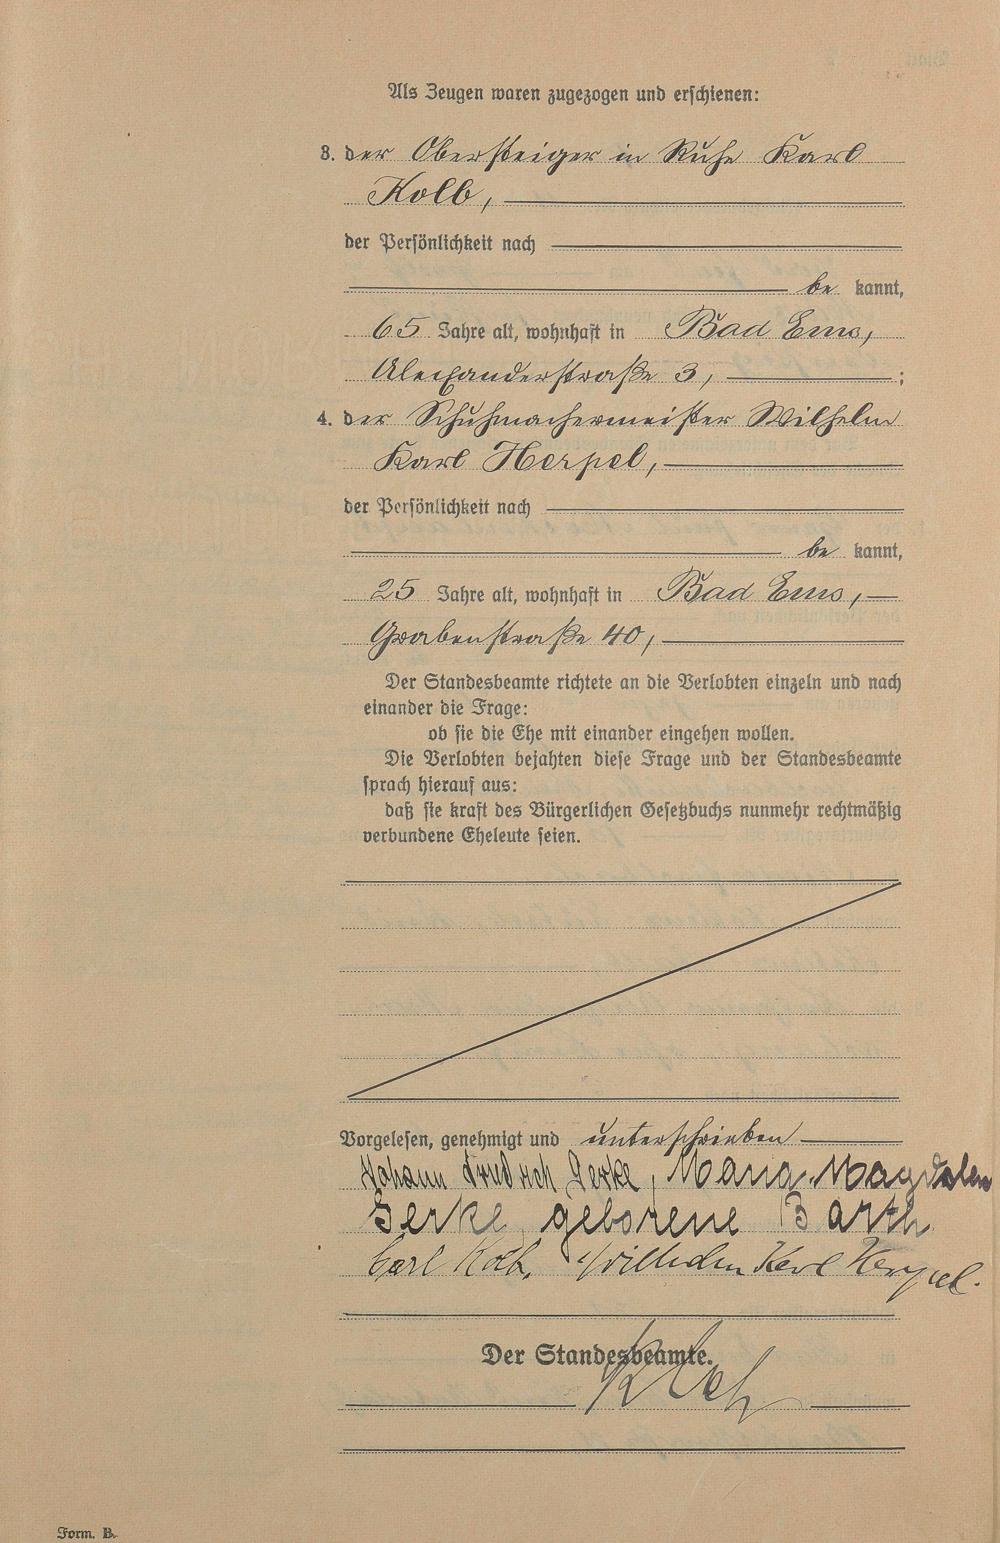 Als Zeugen waren zugezogen und erschienen:
3. der Obersteiger in Ruhe Karl
Kolb,
der Persönlichkeit nach
be kannt,
65 Jahre alt, wohnhaft in Bad Ems,
Alexanderstraße 3, ;
4. der Schuhmachermeister Wilhelm
Karl Herpel,
der Persönlichkeit nach
be kannt,
25 Jahre alt, wohnhaft in Bad Ems,
Grabenstraße 40,
Der Standesbeamte richtete an die Verlobten einzeln und nach
einander die Frage:
ob sie die Ehe mit einander eingehen wollen.
Die Verlobten bejahten diese Frage und der Standesbeamte
sprach hierauf aus:
daß sie kraft des Bürgerlichen Gesetzbuchs nunmehr rechtmäßig
verbundene Eheleute seien.
Vorgelesen, genehmigt und unterschrieben
Johann Gerke, Maria Magdalen
Gerke geborene Barth
Carl Kolb. Wilhelm Karl Herpel.
Der Standesbeamte.
Form. B.